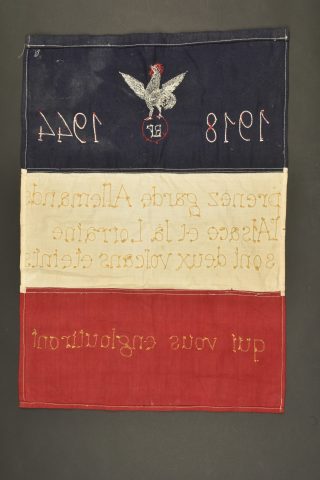 1918 RF 1944
prenez garde Allemands
l'Alsace et la Lorraine
sont deux volcans eteints
qui vous engloutiront